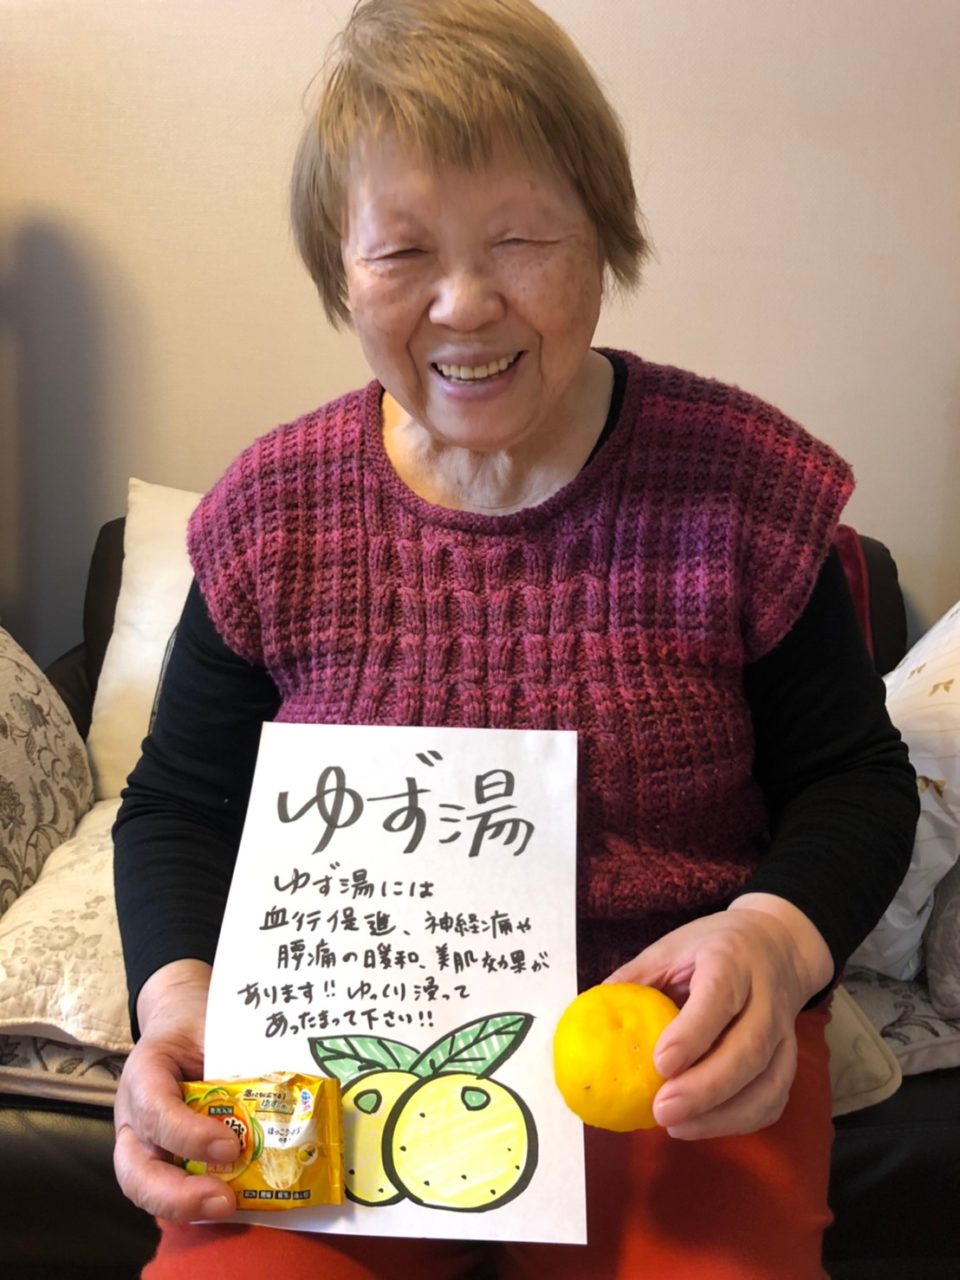 ゆず湯
ゆず湯には
血行促進、神経痛や
腰痛の暖和、美肌効果が
あります!! ゆっくり浸って
あったまって下さい!!